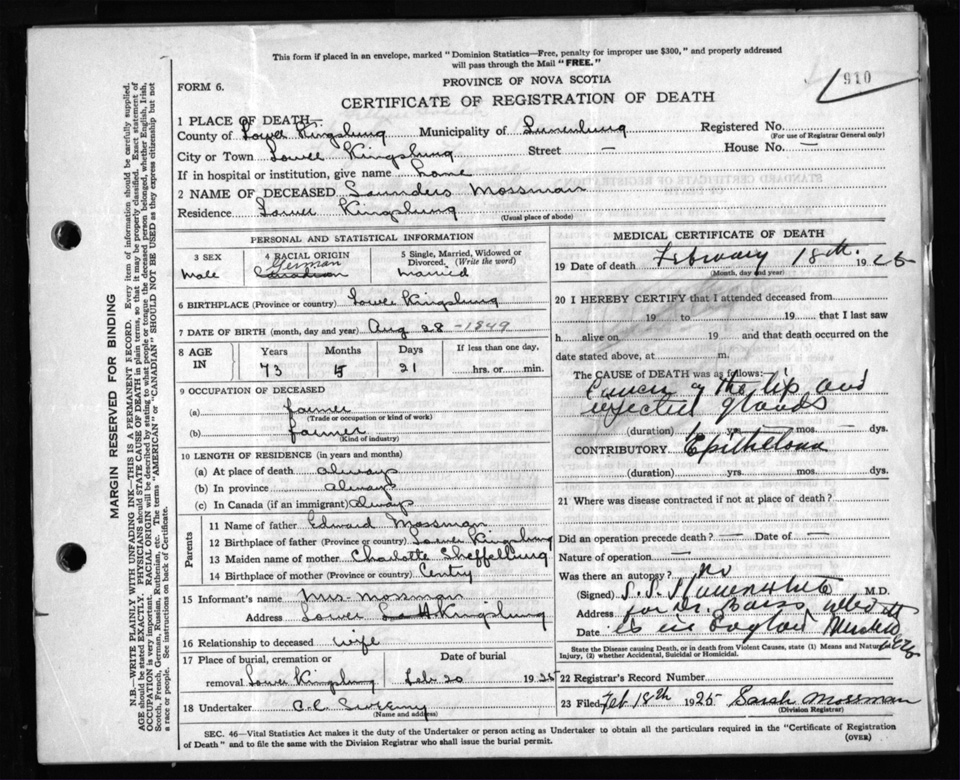 This form if placed in an envelope, marked "Dominion Statistics—Free, penalty for improper use $300," and properly addressed
will pass through the Mail "FREE."
910
FORM 6.
PROVINCE OF NOVA SCOTIA
CERTIFICATE OF REGISTRATION OF DEATH
1 PLACE OF DEATH—
County of Lower Kingsburg Municipality of Lunenburg Registered No.
(For use of Registrar General only)
City or Town Lower Kingsburg Street — House No. —
If in hospital or institution, give name home
2 NAME OF DECEASED Saunders Mossman
Residence Lower Kingsburg
(Usual place of abode)
PERSONAL AND STATISTICAL INFORMATION
3 SEX
Male
4 RACIAL ORIGIN
German
Canadian
5 Single, Married, Widowed or
Divorced. (Write the word)
Married
6 BIRTHPLACE (Province or country) Lower Kingsburg
7 DATE OF BIRTH (month, day and year) Aug 28 - 1849
8 AGE IN
Years Months Days If less than one day,
73 5 21 hrs. or min.
9 OCCUPATION OF DECEASED
(a) farmer
(Trade or occupation or kind of work)
(b) farmer
(Kind of industry)
10 LENGTH OF RESIDENCE (in years and months)
(a) At place of death always
(b) In province always
(c) In Canada (if an immigrant) always
Parents
11 Name of father Edward Mossman
12 Birthplace of father (Province or country) Lower Kingsburg
13 Maiden name of mother Charlotte
14 Birthplace of mother (Province or country)
15 Informant's name Mrs Mossman
Address Lower Kingsburg
16 Relationship to deceased wife
17 Place of burial, cremation or Date of burial
removal Lower Kingsburg Feb 20 1925
18 Undertaker
(Name and address)
MEDICAL CERTIFICATE OF DEATH
19 Date of death February 18th. 1925
(Month, day and year)
20 I HEREBY CERTIFY that I attended deceased from
19 to 19 that I last saw
h alive on 19 and that death occurred on the
date stated above, at m.
The CAUSE OF DEATH was as follows:
Cancer of the lip and
glands
(duration) 1 yrs. — mos. — dys.
CONTRIBUTORY
(duration) yrs. mos. dys.
21 Where was disease contracted if not at place of death?
Did an operation precede death? — Date of —
Nature of operation —
Was there an autopsy? No
(Signed) M.D.
Address for Dr.
Date is in England
State the Disease causing Death, or in death from Violent Causes, state (1) Means and Nature of
Injury, (2) whether Accidental, Suicidal or Homicidal.
22 Registrar's Record Number
23 Filed Feb 18th 1925 Sarah Mossman
(Division Registrar)
SEC. 46—Vital Statistics Act makes it the duty of the Undertaker or person acting as Undertaker to obtain all the particulars required in the "Certificate of Registration
of Death" and to file the same with the Division Registrar who shall issue the burial permit.
(OVER)
MARGIN RESERVED FOR BINDING
N.B.—WRITE PLAINLY WITH UNFADING INK—THIS IS A PERMANENT RECORD. Every item of information should be carefully supplied.
AGE should be stated EXACTLY. PHYSICIANS should STATE CAUSE OF DEATH in plain terms, so that it may be properly classified. Exact statement of
OCCUPATION is very important. RACIAL ORIGIN will be described by stating to what people or tongue the deceased person belonged, whether English, Irish,
Scotch, French, German, Russian, Ruthenian, etc. The terms "AMERICAN" or "CANADIAN" SHOULD NOT BE USED as they express citizenship but not
a race or people. See instructions on back of Certificate.